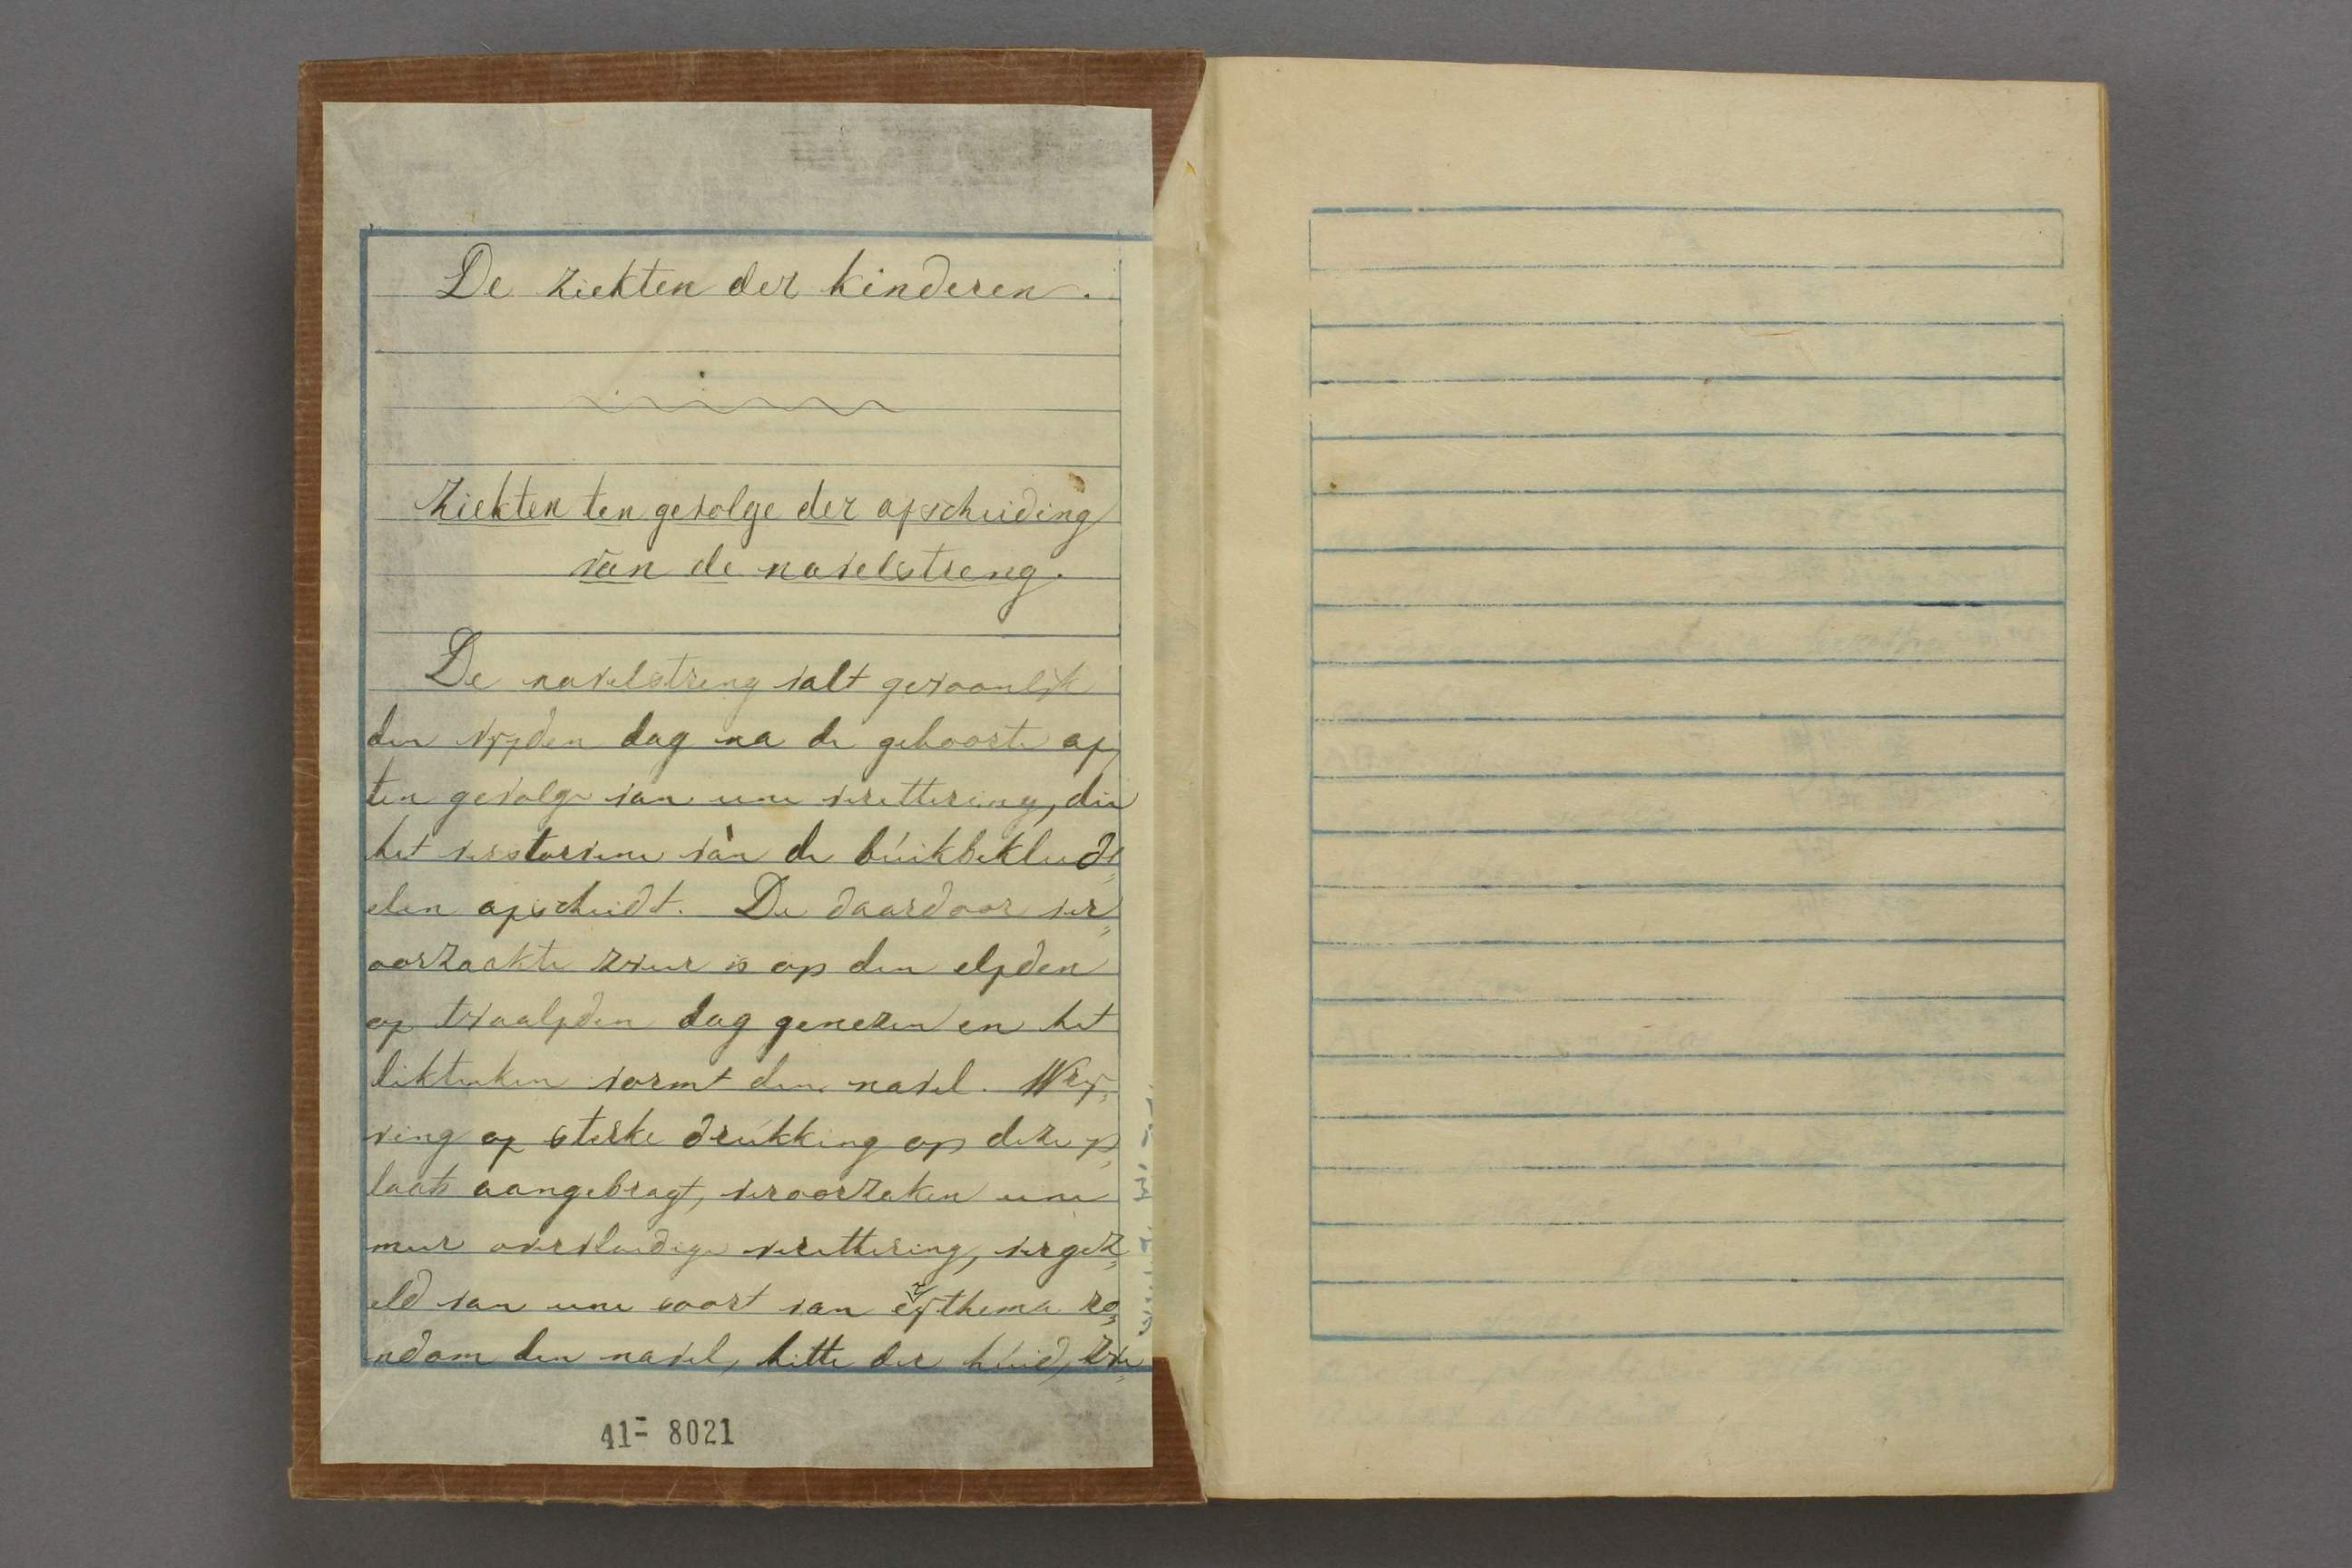 De ziekten der kinderen.
Ziekten ten gevolge der afscheiding
van de navelstreng.
De navelstreng valt gewoonlijk
den vijfden dag na de geboorte af,
ten gevolge van eene verettering, die
het verstorvene van de buikbekleeds„
elen afscheidt. De daardoor ver„
oorzaakte zweer is op den elfden
of twaalfden dag genezen en het
likteeken vormt den navel. Wrij„
ving of sterke drukking op deze p„
laats aangebragt, veroorzaken eene
meer overvloedige verettering, vergez„
eld van eene soort van erythema ro„
ndom den navel, hitte der huid, zwe„
41-8021